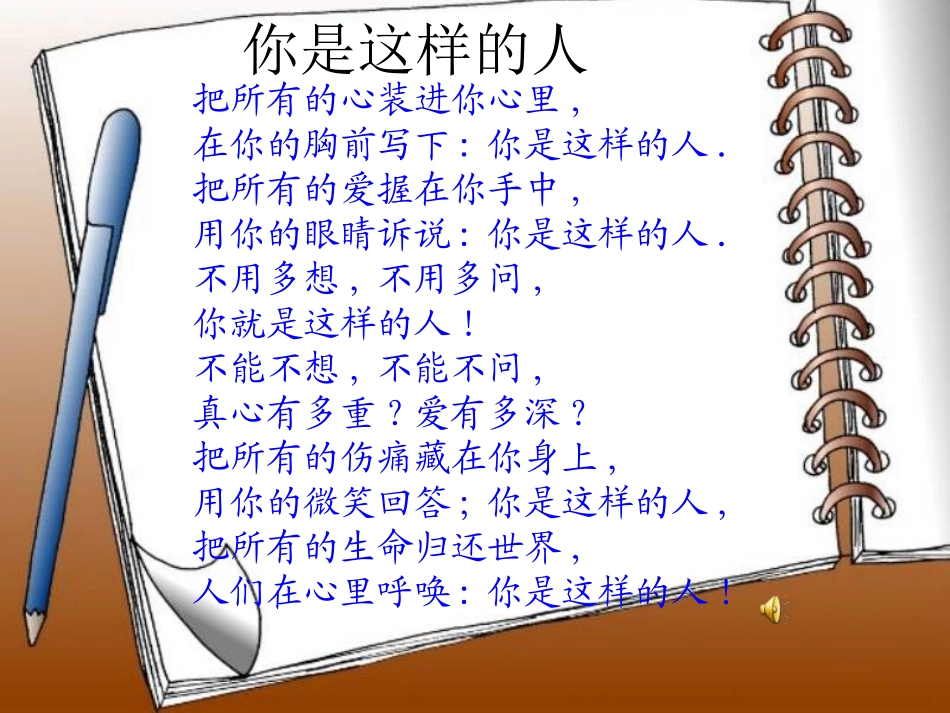 你是这样的人
把所有的心装进你心里，
在你的胸前写下：你是这样的人．
把所有的爱握在你手中，
用你的眼睛诉说：你是这样的人．
不用多想，不用多问，
你就是这样的人！
不能不想，不能不问，
真心有多重？爱有多深？
把所有的伤痛藏在你身上，
用你的微笑回答；你是这样的人，
把所有的生命归还世界，
人们在心里呼唤：你是这样的人！